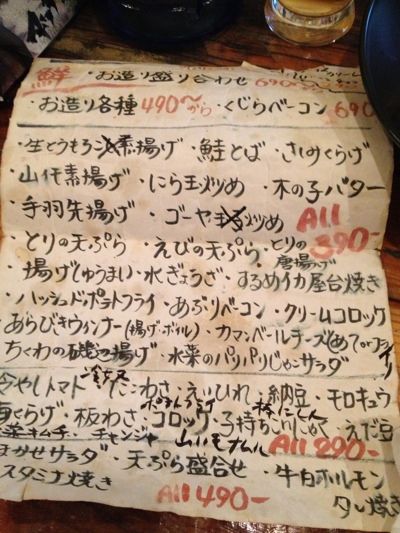 鮮 ・お造り盛り合わせ 690〜
・お造り各種 490〜から ・くじらベーコン 690
・生とうもろこし素揚げ ・鮭とば ・さしみくらげ
・山代素揚げ ・にら玉炒め ・木の子バター
・手羽先揚げ ・ゴーヤ玉炒め All 390-
・とりの天ぷら ・えびの天ぷら ・とりの唐揚げ
・揚げしゅうまい ・水ぎょうざ ・するめイカ屋台焼き
・ハッシュドポテトフライ ・あぶりベーコン ・クリームコロッケ
・あらびきウィンナー(揚げ・ボイル) ・カマンベールチーズ
ちくわの磯辺揚げ ・水菜のパリパリじゃこサラダ
冷やしトマト 冷奴 ・たこわさ ・えいひれ ・納豆 ・モロキュウ
海くらげ ・板わさ ・コロッケ ・子持ち ・えだ豆
チャンジャ 山いも All 290-
まかせサラダ ・天ぷら盛合せ ・牛白ホルモン
スタミナ焼き All 490- タレ焼き